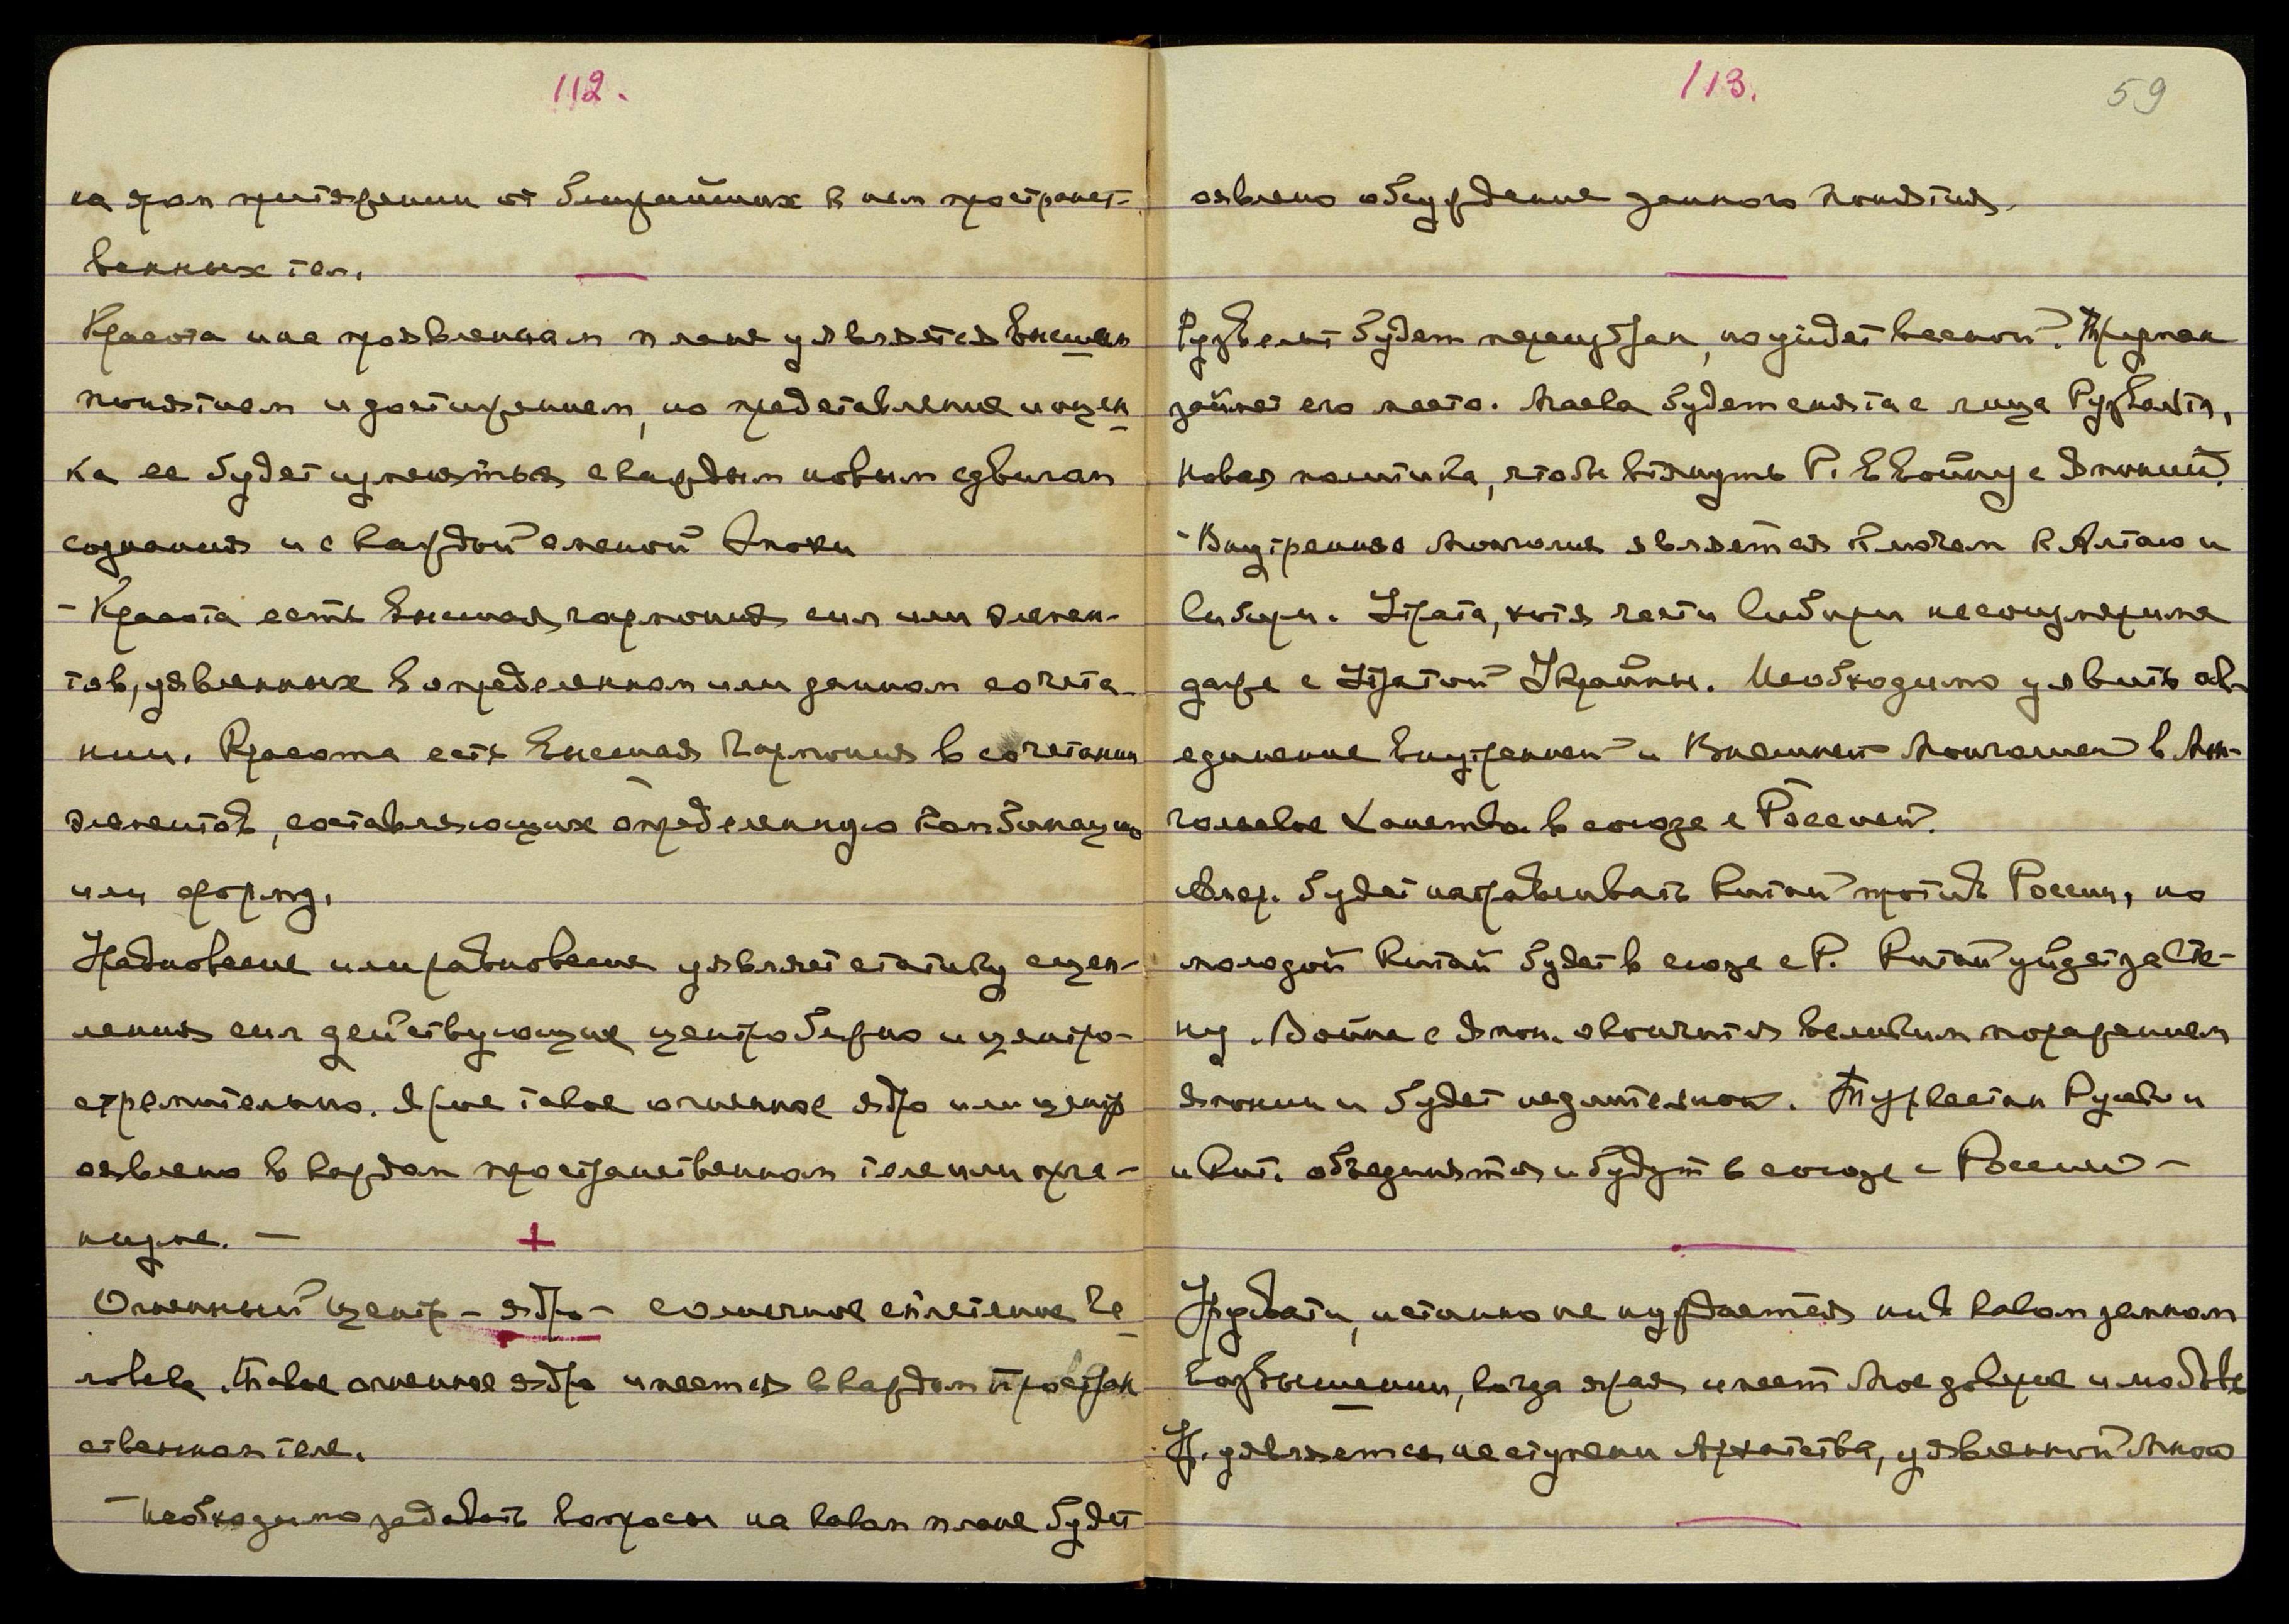 112.
на яром притяжении от ближайших к нем пространст-
венных тел.
Красота и на проявленном плане уявляется высшим
понятием и достижением, но представление и оцен
ка ее будет изменяться с каждым новым сдвигом
сознания и с каждой сменой Эпохи
- Красота есть высшая гармония сил или элемен-
тов, уявленных в определенном или данном сочета-
нии. Красота есть Высшая Гармония в сочетании
элементов, составляющих определенную комбинацию
или форму.
Равновесие уявляет статику сцеп-
ления сил действующие центробежно и центро-
стремительно. Ярое такое огненное ядро или центр
оявлено в каждом пространственном теле или орга-
низме. —
+
Огненный центр - ядро - солнечное сплетение че
ловека. Такое огненное ядро имеется в каждом простран
ственном теле.
- Необходимо задавать вопросы на каком плане будет
113.
59
оявлено обсуждение данного понятия.
Рузвельт будет переизбран, но уйдет весной. Труман
займет его место. Маска будет снята с лица Рузвельта,
новая политика, чтобы втянуть Р. в войну с Японией.
- Внутренняя Монголия является ключом к Алтаю и
Сибири. Утрата, хотя части Сибири несоизмерима
даже с Утратой Украйны. Необходимо уявить об
единение Внутренней и Внешней Монголией в Мон-
гольское Ханство в союзе с Россией.
Амер. будет натравливать Китай против России, но
молодой Китай будет в союзе с Р. Китай уйдет за Сте-
ну. Война с Япон. окончится великим поражением
Японии и будет недлительной. Туркестан Русский
и Кит. объединятся и будут в союзе с Россией -
истинно не нуждается ни в каком земном
возвышении, когда ярая имеет Мое доверие и любовь
У. уявляется на ступени Архатства, уявленной Мною